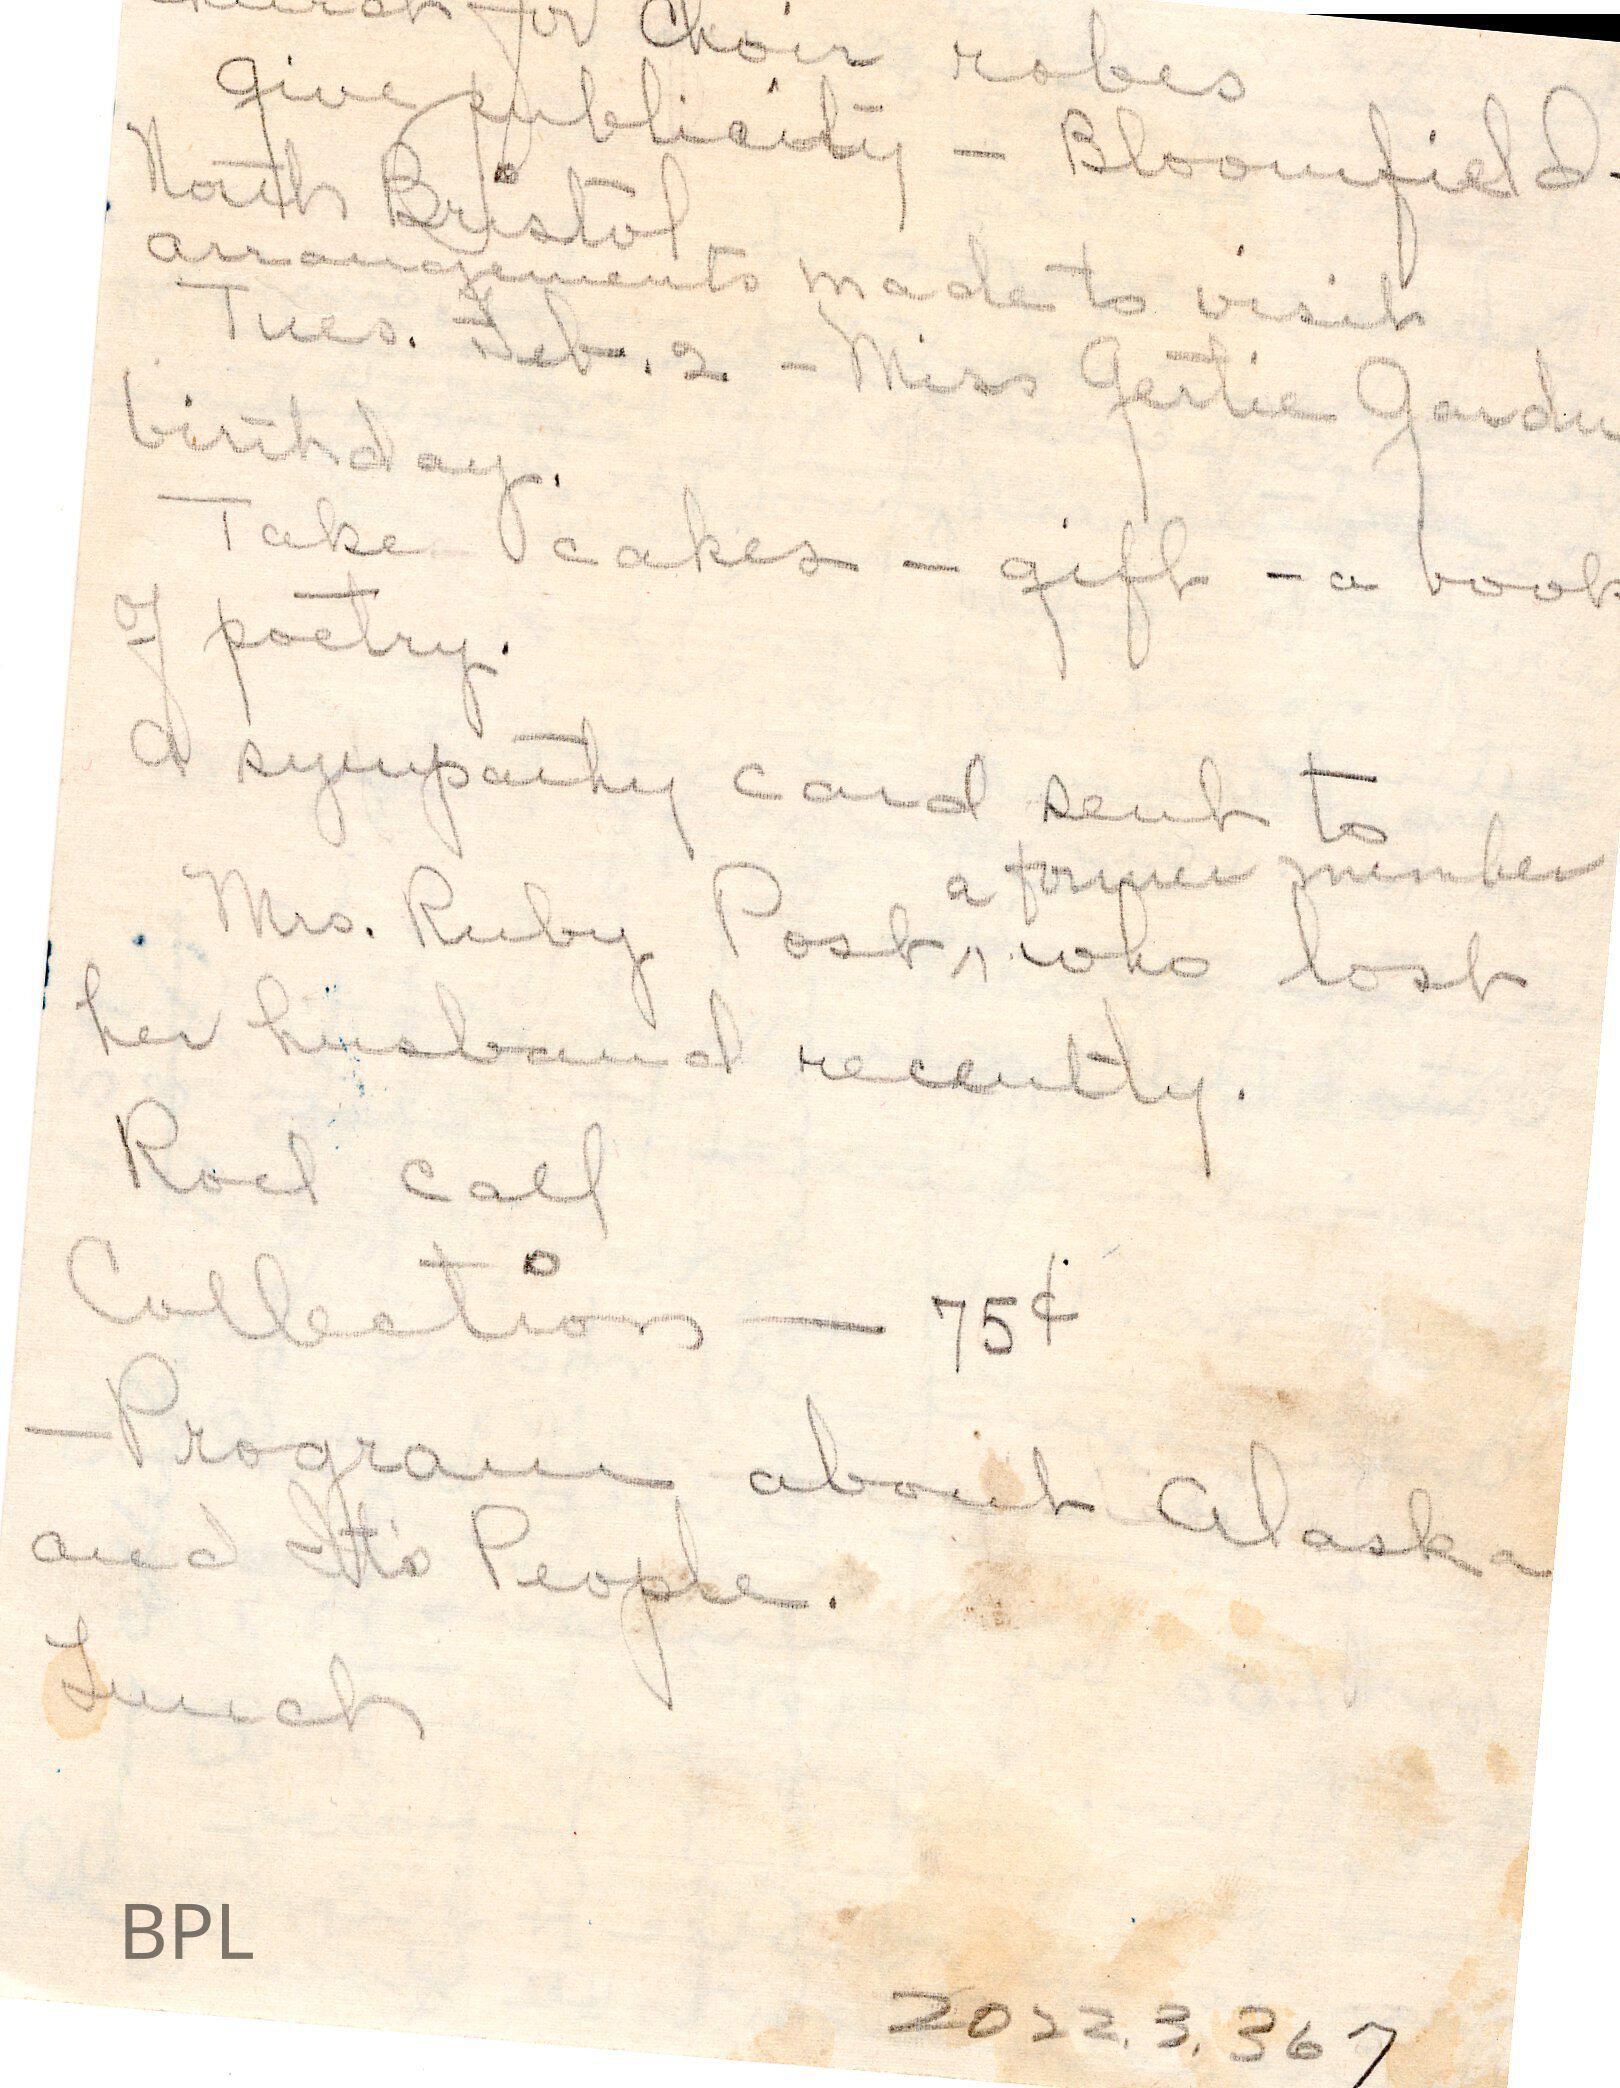 church for Choir robes
give publicity - Bloomfield -
North Bristol
arrangements made to visit
Tues. Feb. 2 - Miss Gertie Gardn
birthday.
Take cakes - gift - a book
of poetry.
A sympathy card sent to
a former member
Mrs. Ruby Post ^ who lost
her husband recently.
Roel call
Collection — 75¢
—Program about Alaska
and It's People.
Lunch
BPL
2022.3.367